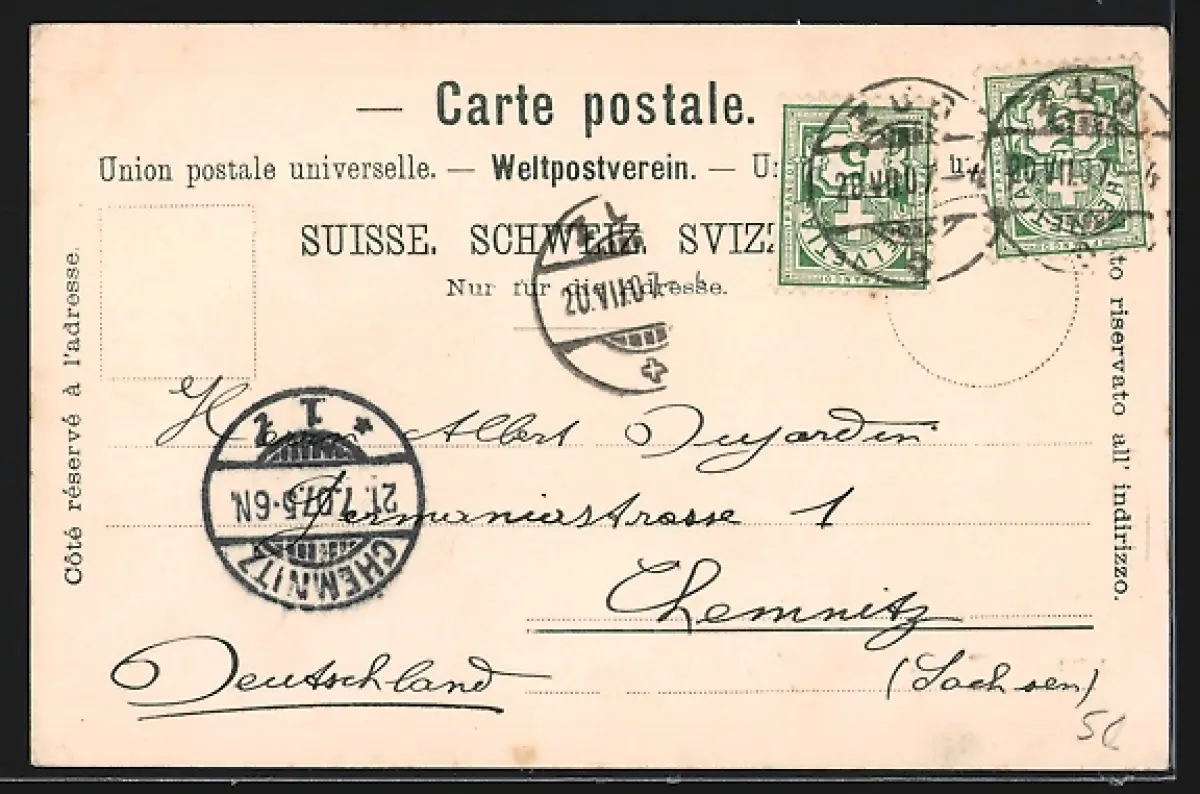 — Carte postale.
Union postale universelle. — Weltpostverein. — U
SUISSE. SCHWEIZ. SVIZZ
Nur für die Adresse.
Côté réservé à l'adresse.
riservato all' indirizzo.
HELVETIA
5
20.VII.07
HELVETIA
5
20.VII.07
20.VII.07
CHEMNITZ
21.7.07.5-6N.
1
Herrn Albert Dujardin
Germaniastrasse 1
Chemnitz
Deutschland (Sachsen)